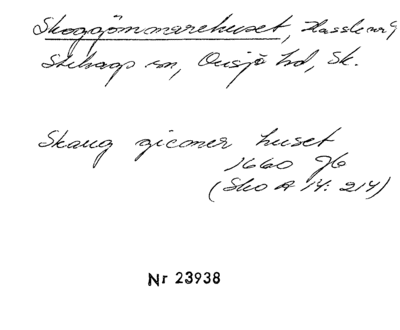 Skoggömmarehuset, Hassle
Stehags sn, Onsjö hd, Sk.
Skaug giømer huset
1660 Jb
(Sko A 14: 214)
Nr 23938